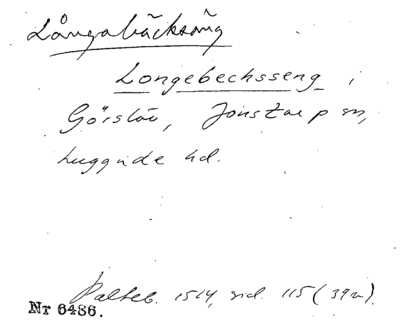 Långabäcksäng
Longebechsseng i
Görslöv, Jonstorp sn,
Luggude hd.
Palteb. 1514, sid. 115 (39v).
Nr 6486.